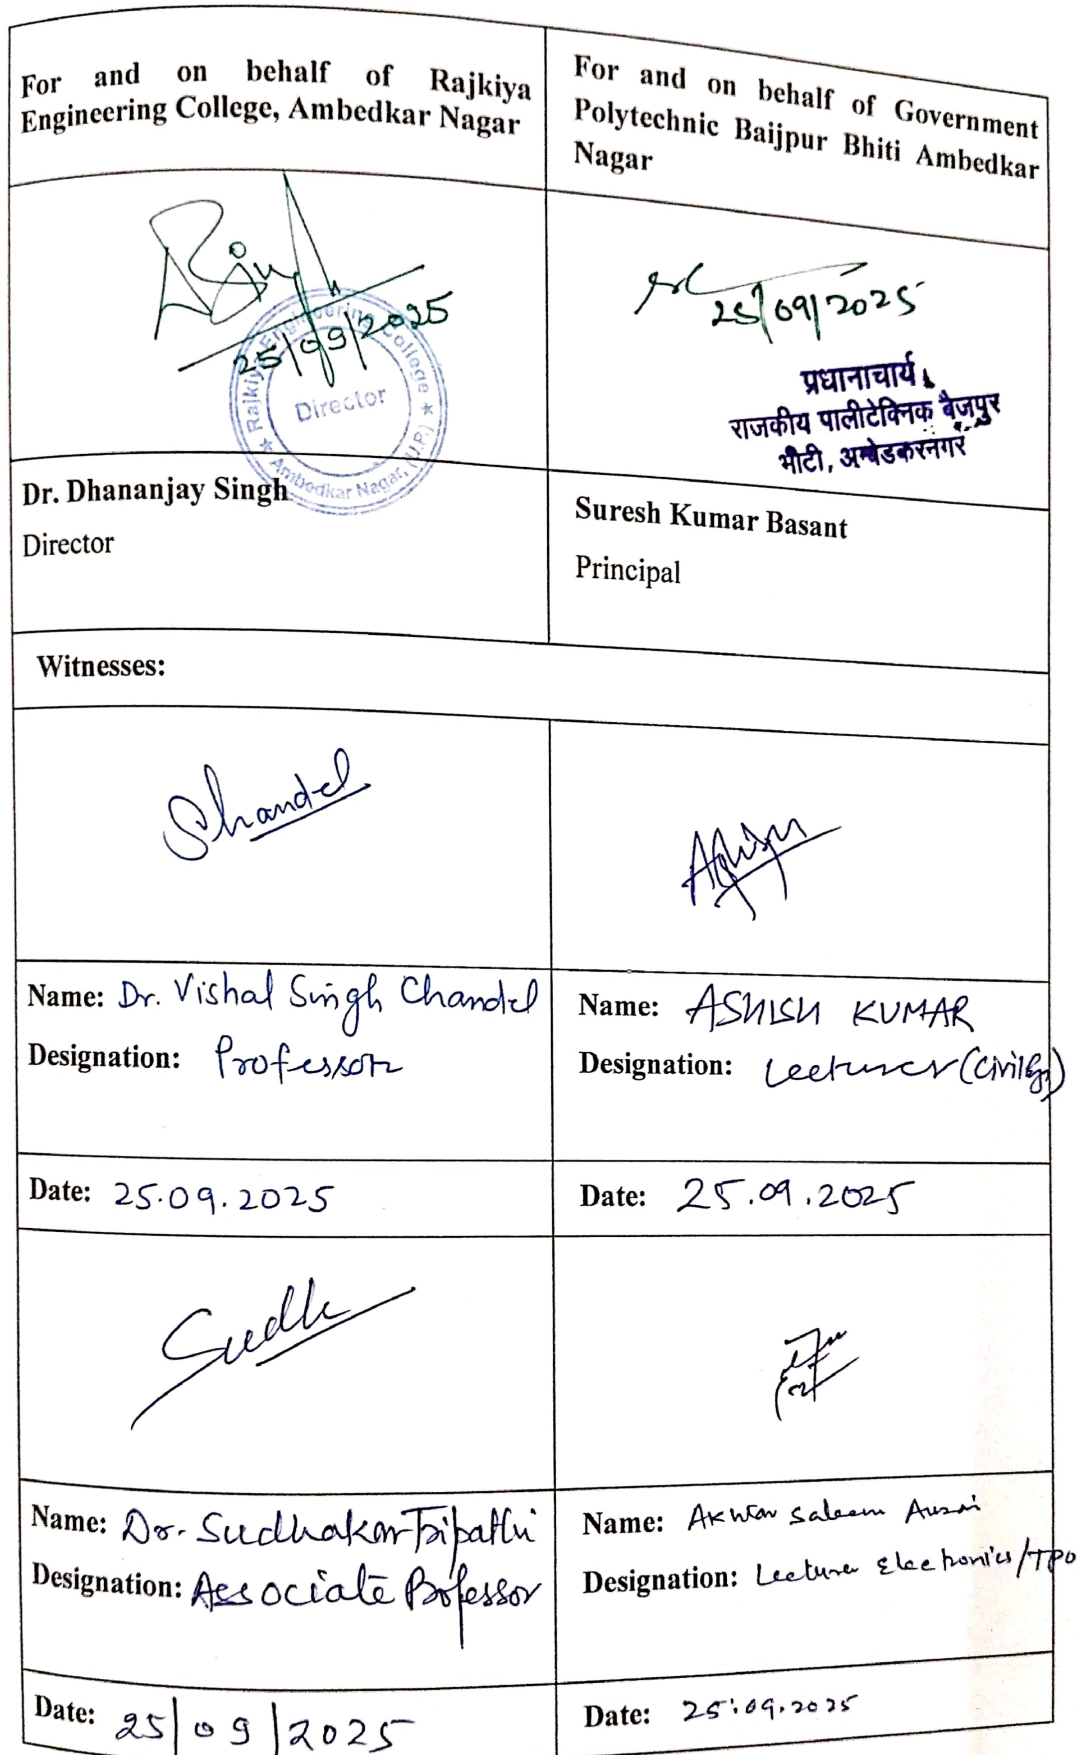 For and on behalf of Rajkiya
Engineering College, Ambedkar Nagar
For and on behalf of Government
Polytechnic Baijpur Bhiti Ambedkar
Nagar
25/09/2025
Rajkiya Engineering College
Director
Ambedkar Nagar, (U.P.)
25/09/2025
प्रधानाचार्य
राजकीय पालीटेक्निक बैजपुर
भीटी, अम्बेडकरनगर
Dr. Dhananjay Singh
Director
Suresh Kumar Basant
Principal
Witnesses:
Chandel
Name: Dr. Vishal Singh Chandel
Designation: Professor
Name: ASHISH KUMAR
Designation: Lecturer (Civil Eg)
Date: 25.09.2025
Date: 25.09.2025
Name: Dr. Sudhakar Tripathi
Designation: Associate Professor
Name: Akhtar Saleem
Designation: Lecturer Electronics/TPO
Date: 25/09/2025
Date: 25.09.2025